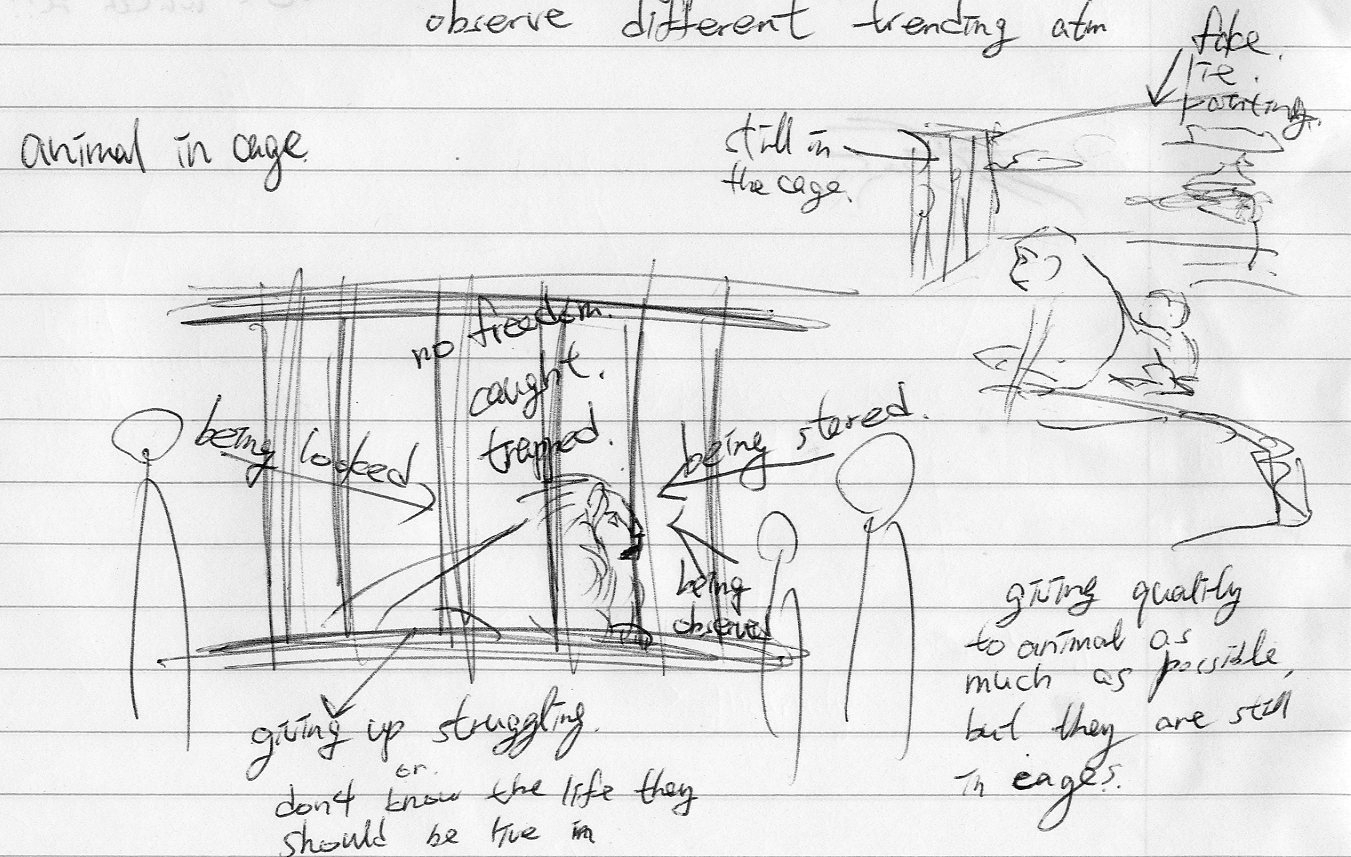 observe different trending atm
fake.
ie.
painting.
still in
the cage.
animal in cage.
no freedom.
caught.
trapped.
being looked
being stared.
being
observed
giving up struggling.
or.
don't know the life they
should be live in
giving quality
to animal as
much as possible,
but they are still
in cages.